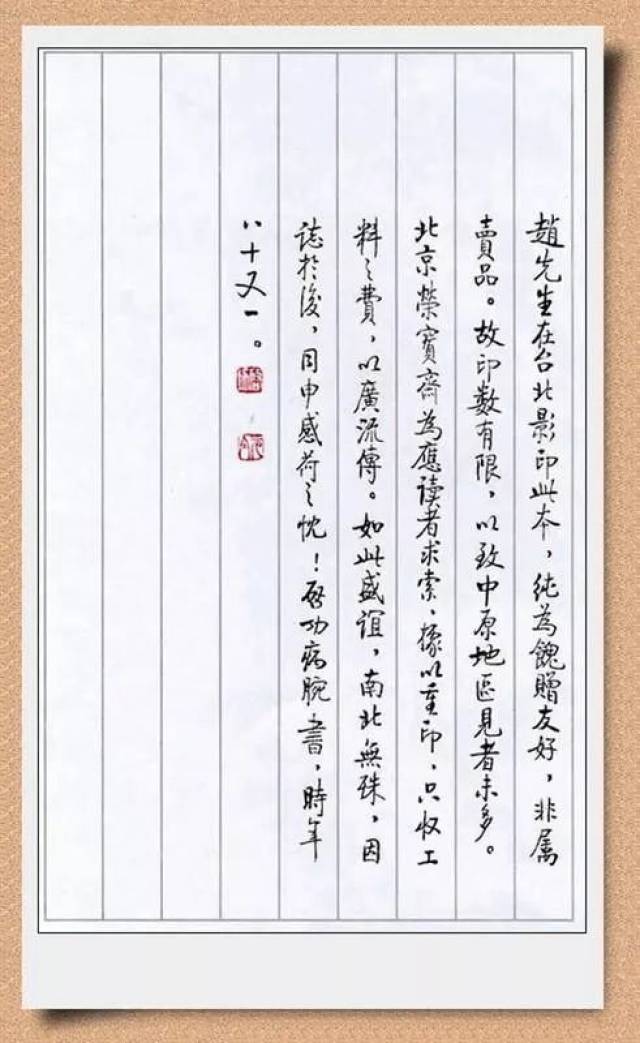 趙先生在台北影印此本，純為餽贈友好，非属
賣品。故印數有限，以致中原地區見者未多。
北京榮寶齋為應读者求索，據以重印，只收工
料之費，以廣流傳。如此盛誼，南北無殊，因
誌於後，同申感荷之忱！啓功病腕書，時年
八十又一。